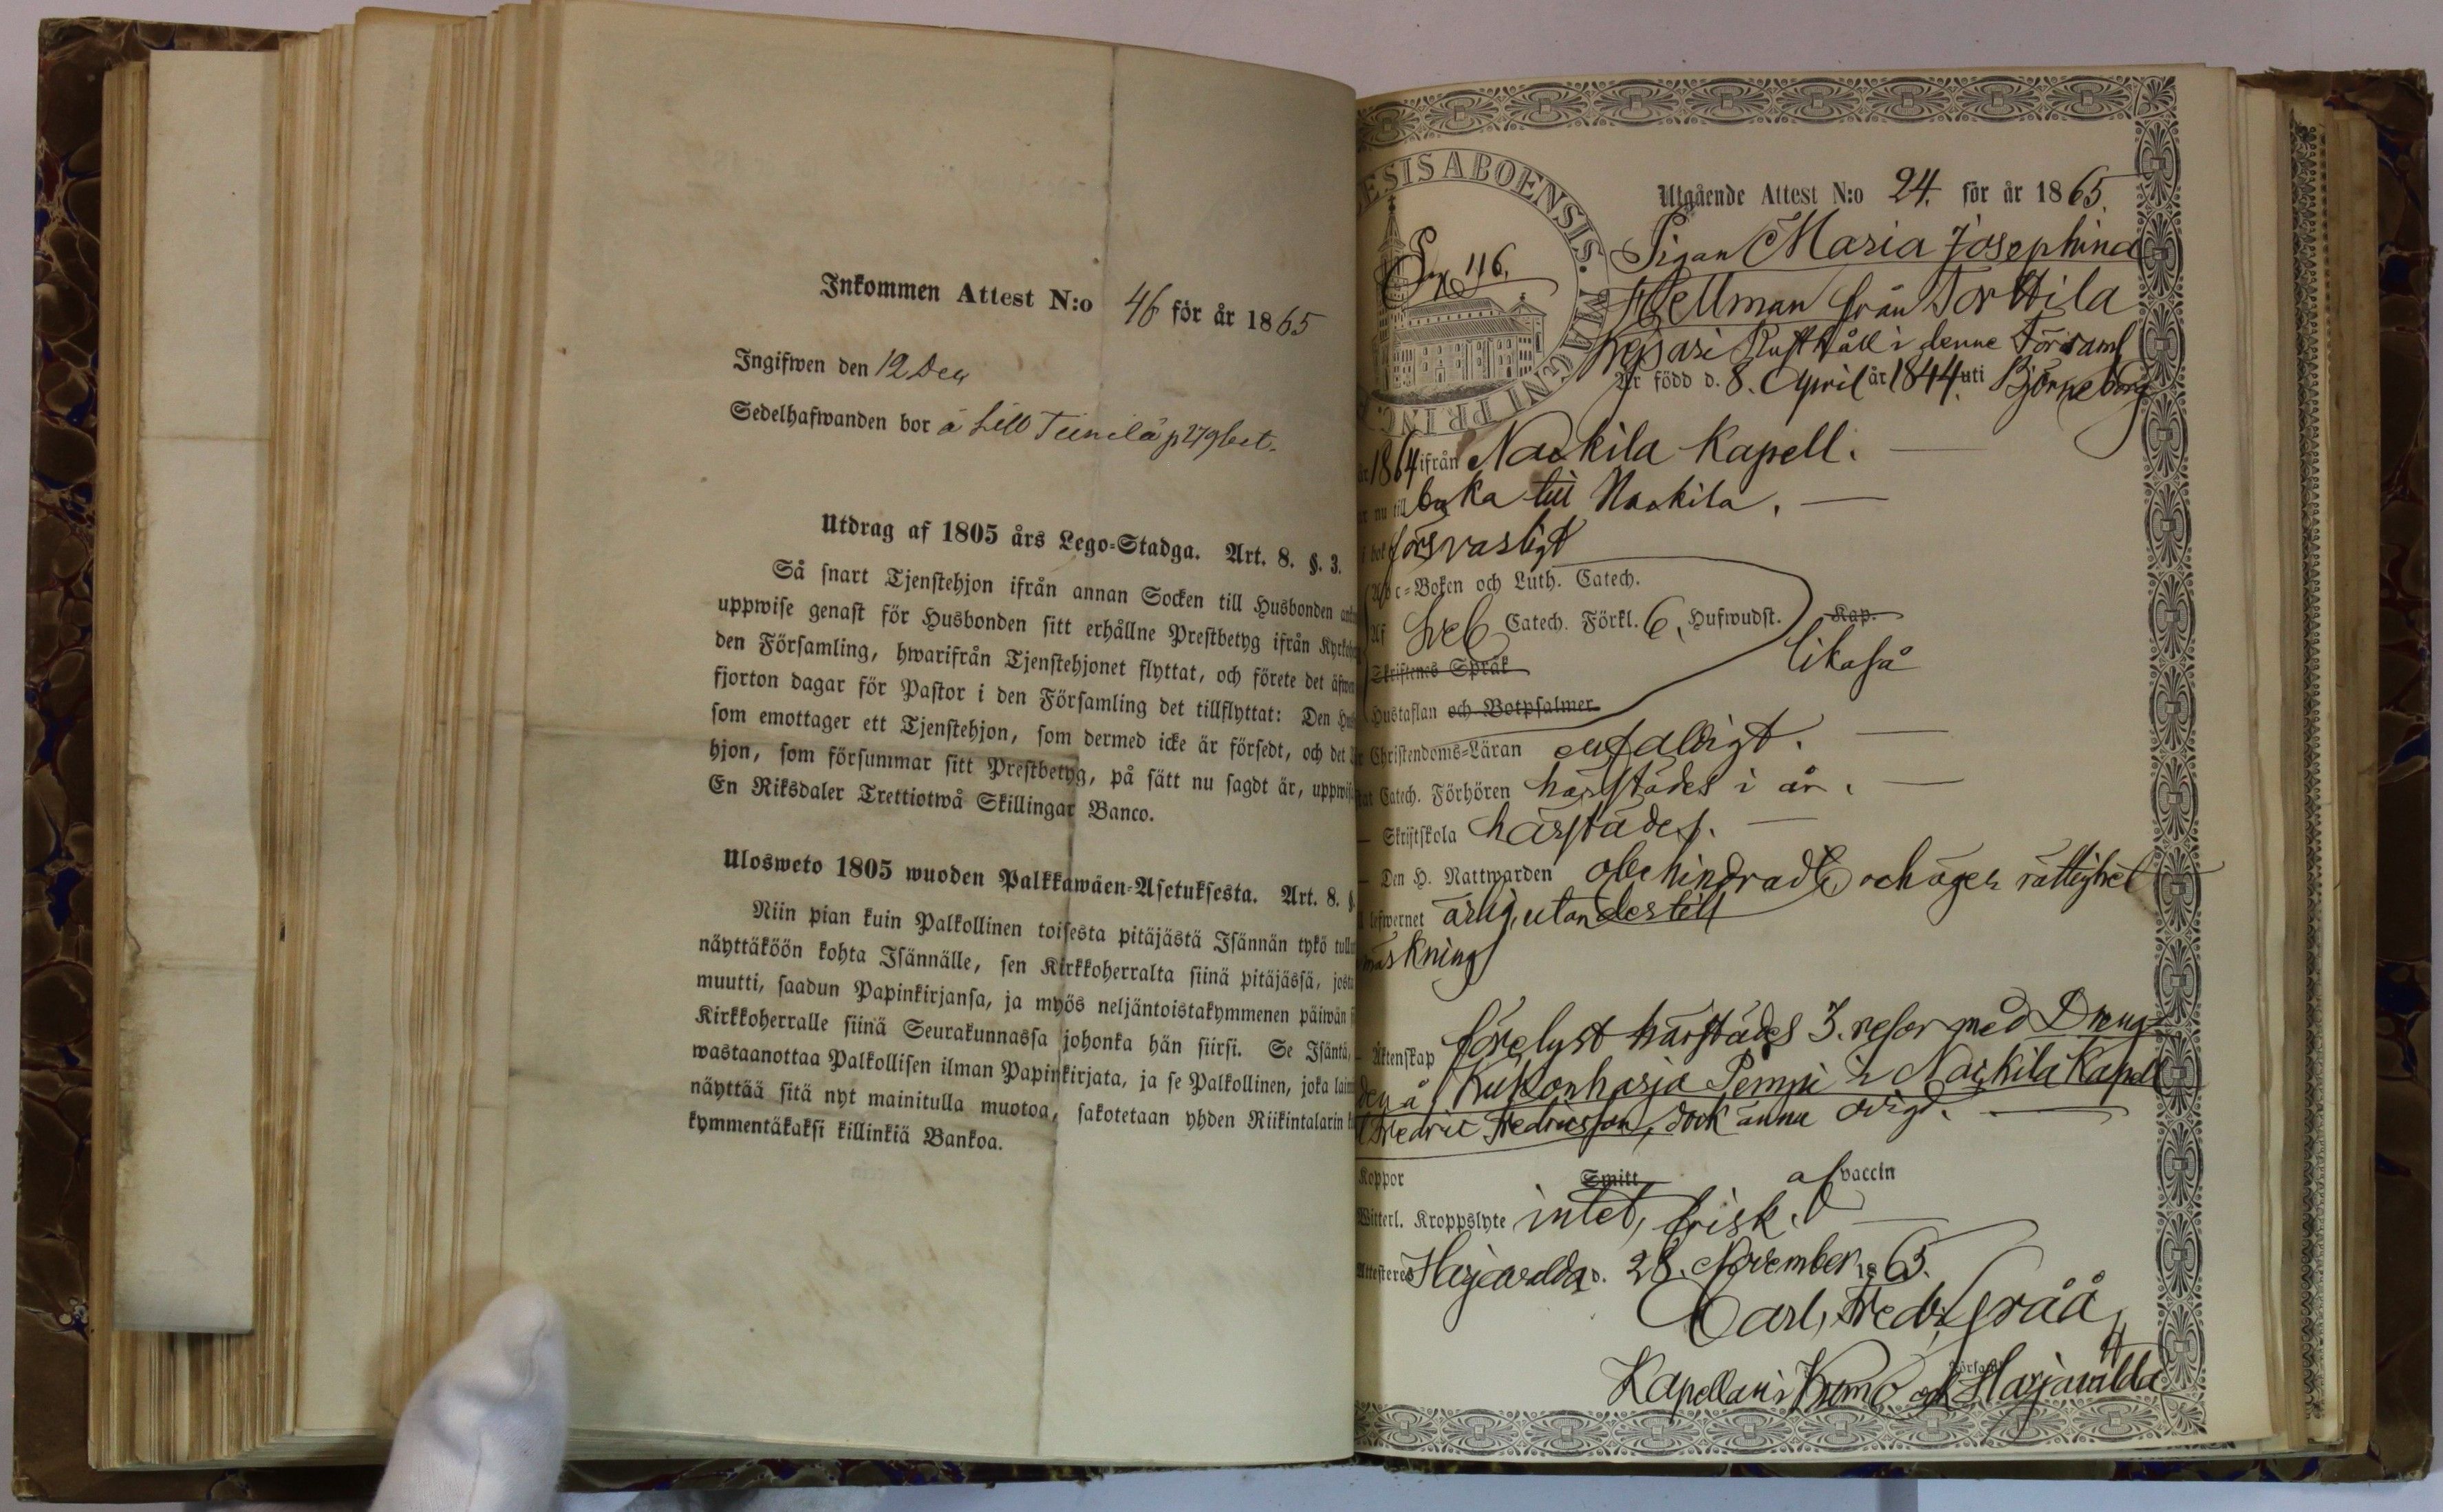 Inkommen Attest N:o 46 för år 1865
Ingifwen den 12 Dec
Sedelhafwanden bor å Lill Teinilä p 279
Utdrag af 1805 års Lego-Stadga. Art. 8. §. 3.
Så snart Tjenstehjon ifrån annan Socken till Husbonden
uppwise genast för Husbonden sitt erhållne Prestbetyg ifrån
den Församling, hwarifrån Tjenstehjonet flyttat, och förete det
fjorton dagar för Pastor i den Församling det tillflyttat: Den
som emottager ett Tjenstehjon, som dermed icke är försedt, och det
hjon, som försummar sitt Prestbetyg, på sätt nu sagdt är,
En Riksdaler Trettiotwå Skillingar Banco.
Ulosweto 1805 wuoden Palkkawäen-Asetuksesta. Art. 8.
Niin pian kuin Palkollinen toisesta pitäjästä Isännän tykö
näyttäköön kohta Isännälle, sen Kirkkoherralta siinä pitäjässä,
muutti, saadun Papinkirjansa, ja myös neljäntoistakymmenen päiwän
Kirkkoherralle siinä Seurakunnassa johonka hän siirsi. Se Isäntä,
wastaanottaa Palkollisen ilman Papinkirjata, ja se Palkollinen, joka
näyttää sitä nyt mainitulla muotoa, sakotetaan yhden Riikintalarin
kymmentäkaksi killinkiä Bankoa.
ESIS ABOENSIS. MAGNI PRINC
Utgående Attest N:o 24. för år 1865.
Pag 116.
Pigan Maria Josephina
Hellman från Torttila
Kepari Rusthåll i denne Församl
Är född d. 8. April år 1844. uti Björneborg
år 1864 ifrån Nackila Kapell.
nu till baka till Nackila.
i bok försvarligt
Abc-Boken och Luth. Catech.
Af Sveb Catech. Förkl. 6. Hufwudst. Kap.
likaså
Skriftenes Språk
Hustaflan och Botpsalmer
Christendoms-Läran enfaldigt.
Catech. Förhören härstädes i år.
Skriftskola härstädes.
Den H. Nattwarden obehindrad och äger rättighet
lefwernet ärlig, utan des till
märkning
Äktenskap förelyst härstädes 3. resor med Dreng
den å Kukonharja Pempi i Nackila Kapell
Fredric Fredricsson, dock ännu ovigd.
Koppor Smitt af vaccin
Witterl. Kroppslyte intet, frisk.
Attesteres Harjavalda d. 28. November 1865.
Carl Fredr. Gråå
Kapellan i Kumo och Harjavalda
Församl